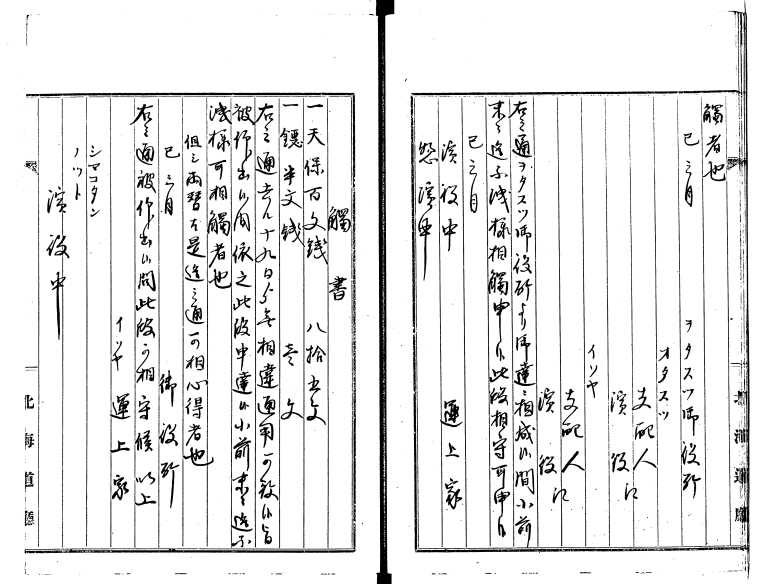 觸者也
巳三月
ヲタスツ御役所
オタスツ
支配人
濱役江
イソヤ
支配人
濱役江
右之通ヲタスツ御役所より御達ニ相成候間小前
末々迄不洩様相觸申候此段相守可申候
巳三月
運上家
濱役中
惣濱中
觸書
一天保百文銭 八拾五文
一鐚半文銭 壱文
右之通去ル十九日より無相違通用可致候旨
被仰出候間依之此段申達候小前末々迄不
洩様可相觸者也
但シ両替方是迄之通可相心得者也
巳三月
御役所
右之通被仰出候間此段可相守候以上
イソヤ
運上家
シマコタン
ノット
濱役中
北海道廳